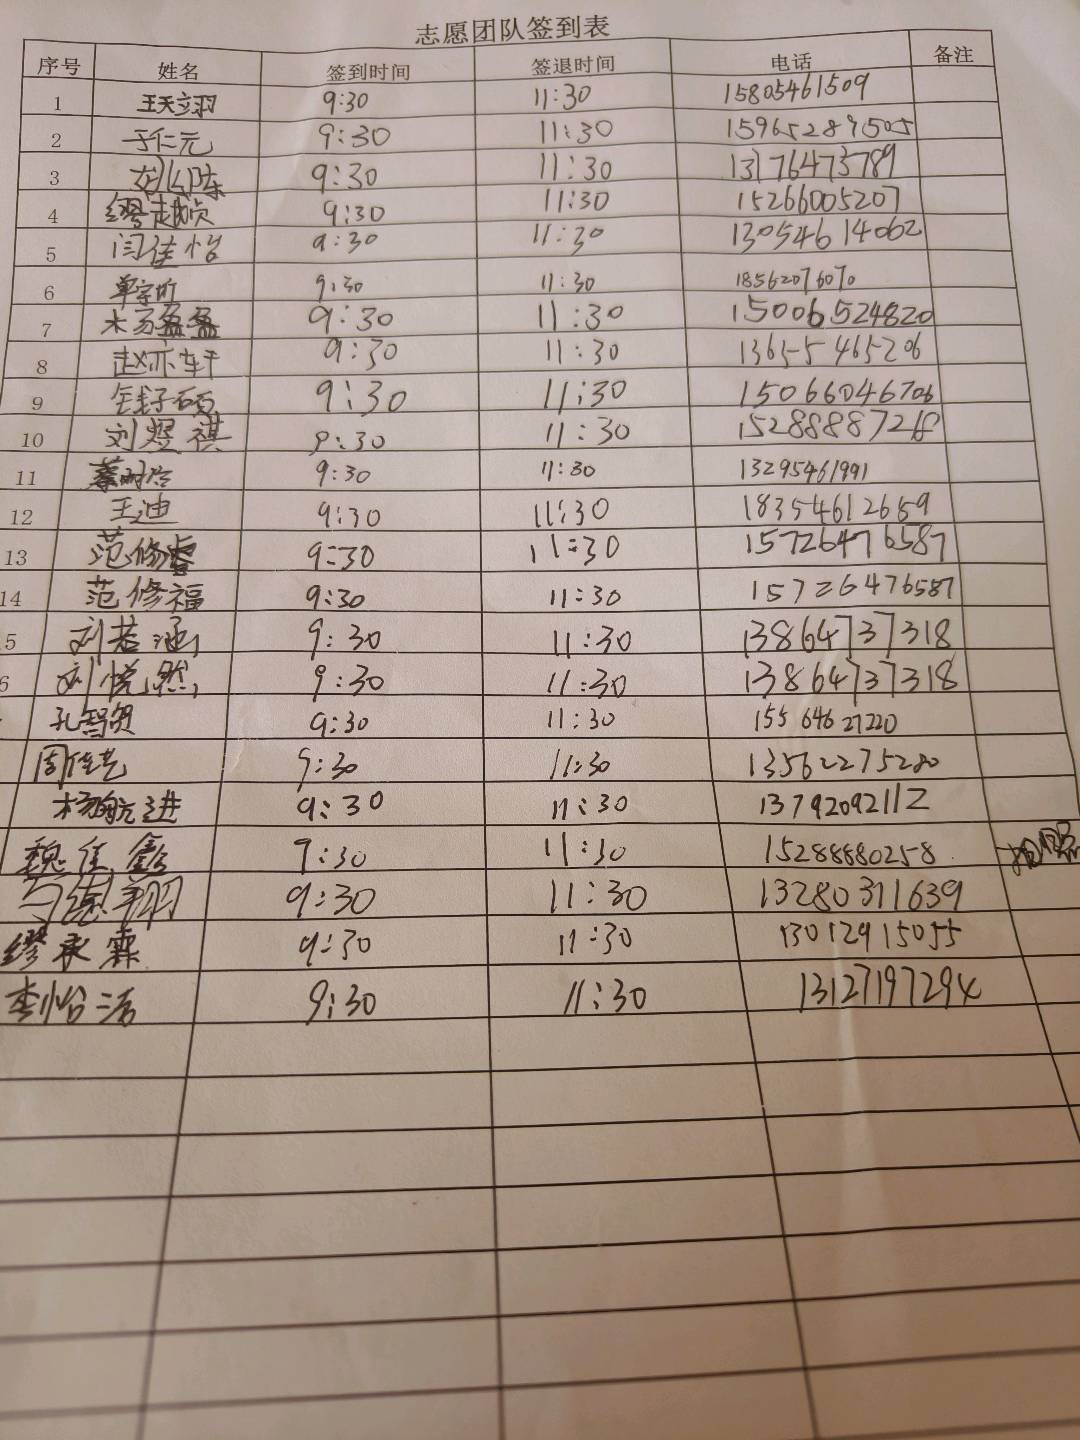 志愿团队签到表
序号 姓名 签到时间 签退时间 电话 备注
1 王天翊 9:30 11:30 15805461509
2 于仁元 9:30 11:30 15965289505
3 9:30 11:30 13176473789
4 缪越祯 9:30 11:30 15266005207
5 闫佳怡 9:30 11:30 13054614062
6 单宇昕 9:30 11:30 18562076070
7 杨盈盈 9:30 11:30 15006524820
8 赵亦轩 9:30 11:30 13655465206
9 钱子硕 9:30 11:30 15066046706
10 刘煜祺 9:30 11:30
11 9:30 11:30 13295461991
12 王迪 9:30 11:30 18354612659
13 范修睿 9:30 11:30 15726476587
14 范修福 9:30 11:30 15726476587
5 刘若涵 9:30 11:30 13864737318
6 刘悦然 9:30 11:30 13864737318
孔智贤 9:30 11:30 15564627220
周佳艺 9:30 11:30 13562275280
杨航进 9:30 11:30 13792092112
魏佳鑫 9:30 11:30 15288880258
9:30 11:30 13280311639
缪承霖 9:30 11:30 13012915055
李怡洁 9:30 11:30 13127197294